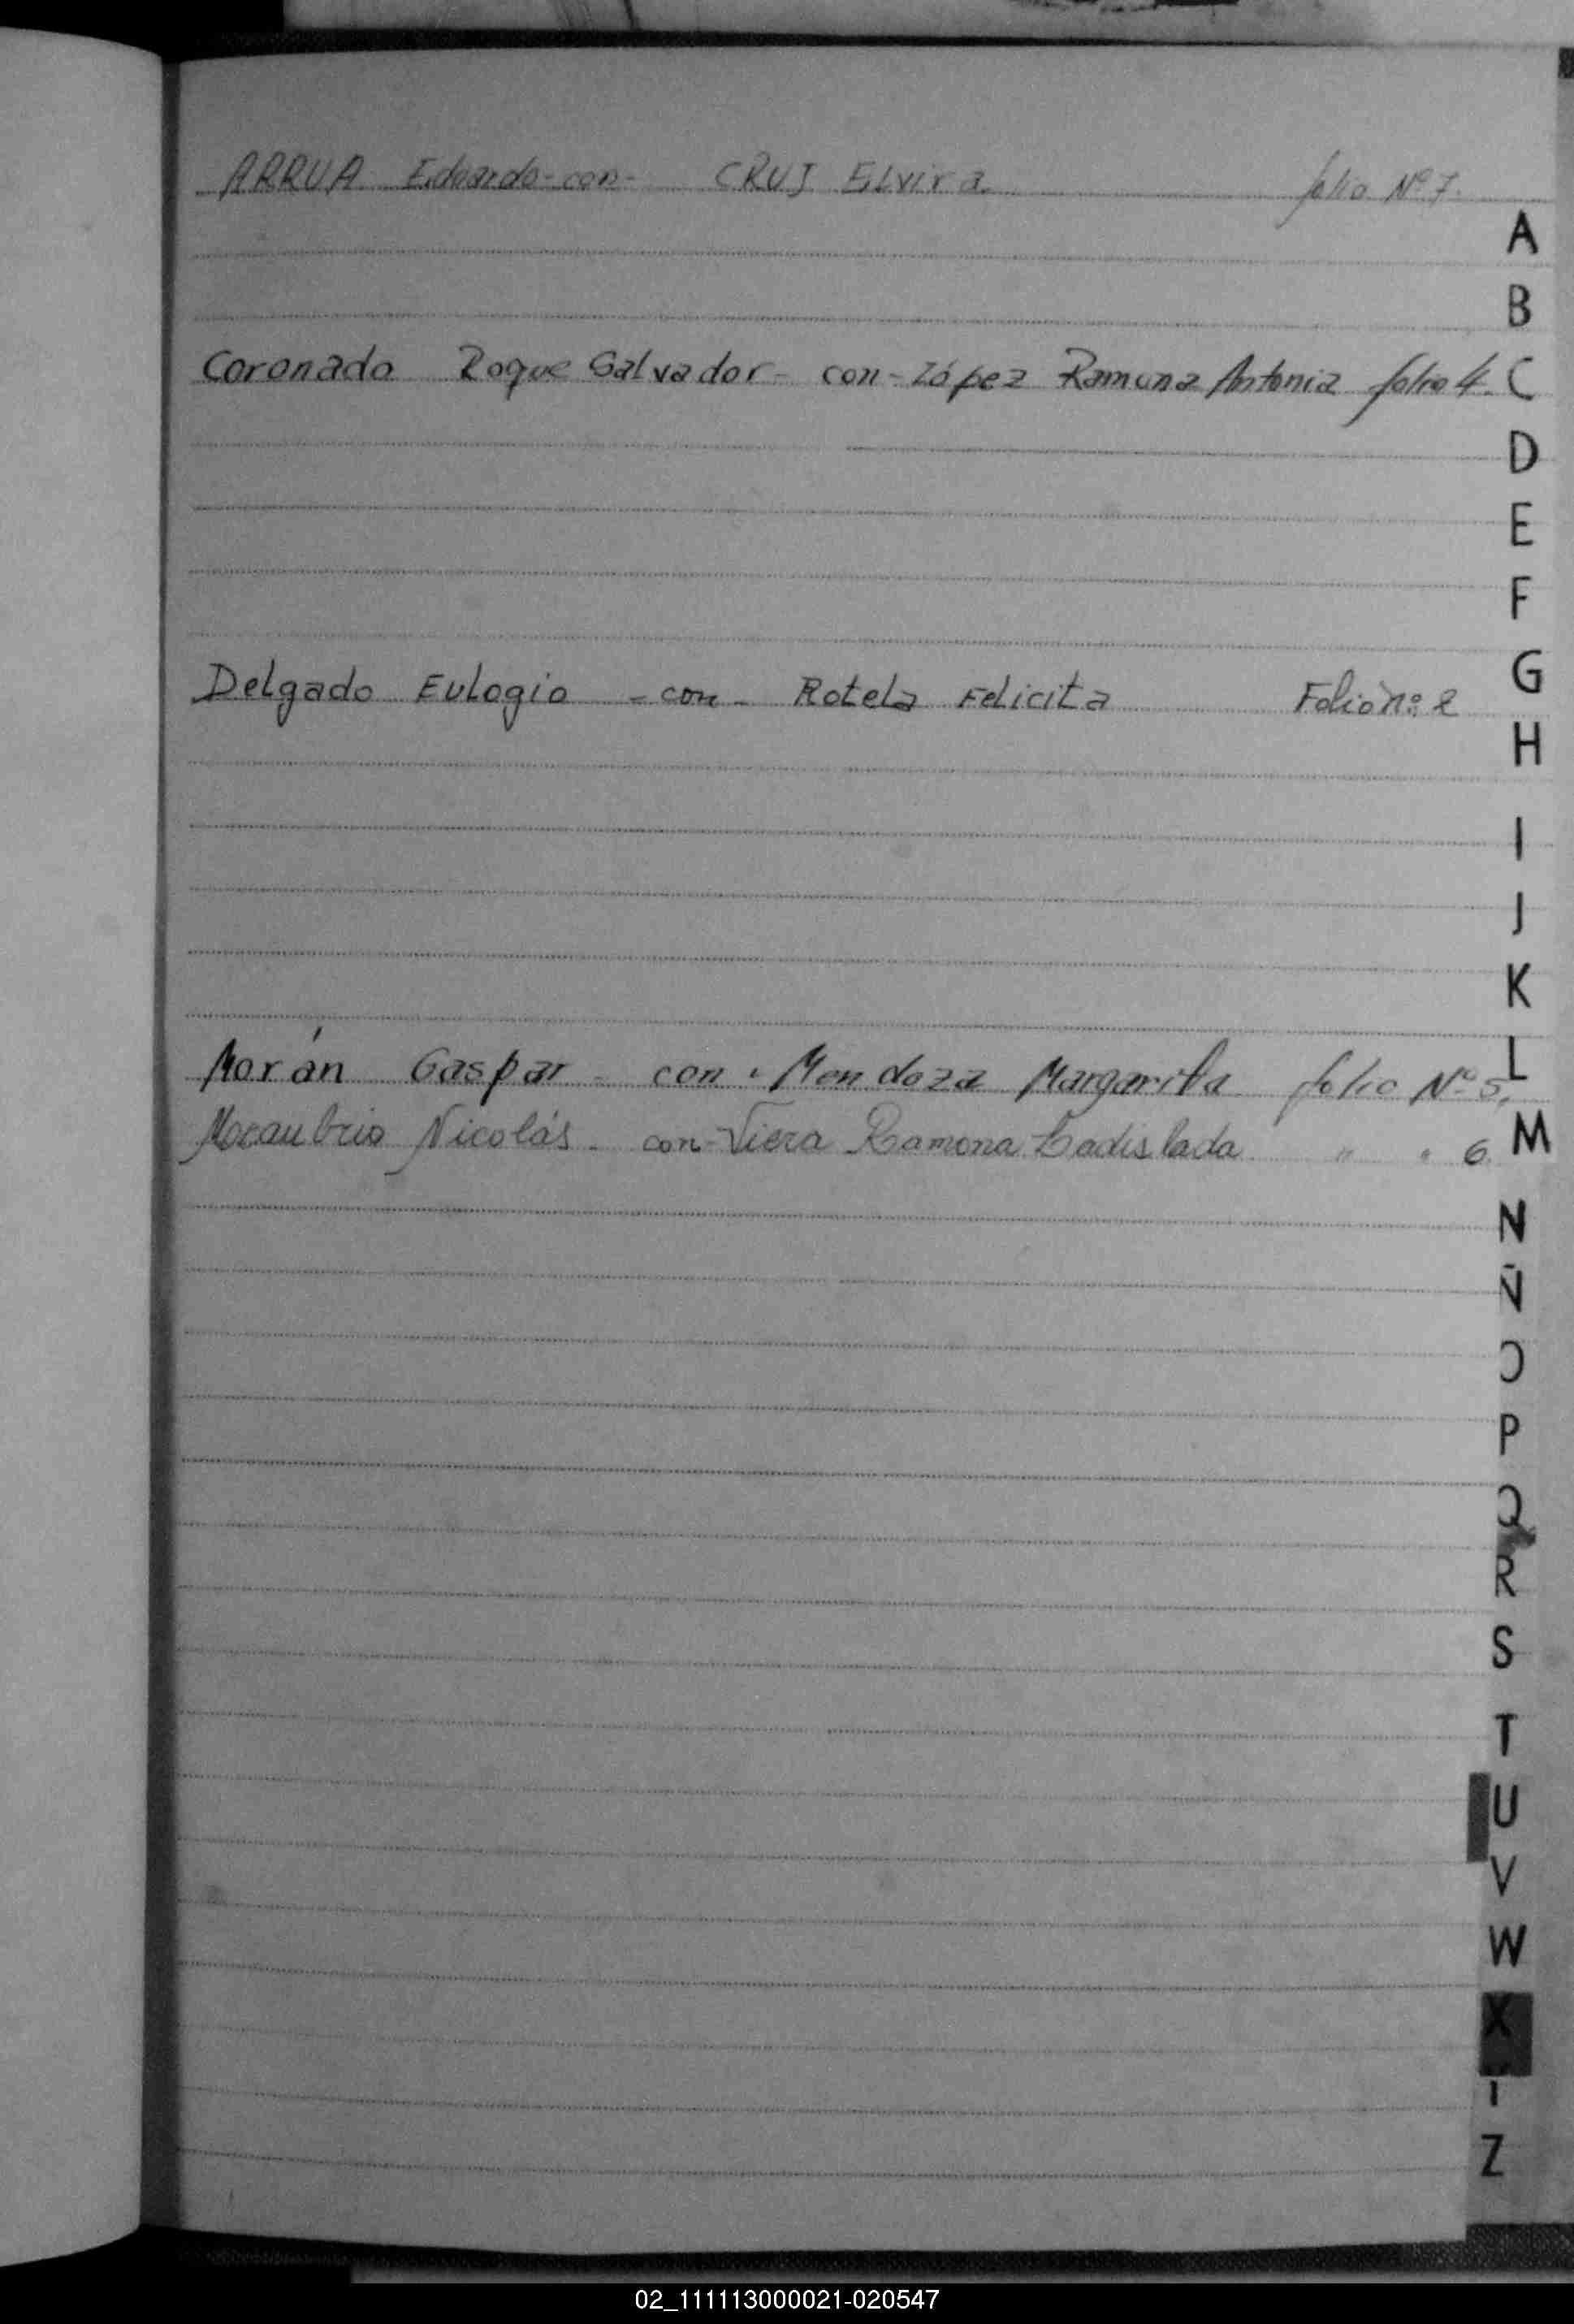 ARRUA Eduardo - con - CRUZ Elvira folio Nº 7.
A
B
Coronado Roque Salvador - con - López Ramona Antonia folio 4.
C
D
E
F
G
Delgado Eulogio - con - Rotela Felicita Folio nº 2
H
I
J
K
L
Morán Gaspar - con - Mendoza Margarita folio Nº 5.
Nicolás - con - Viera Ramona Ladislada " " 6.
M
N
Ñ
O
P
Q
R
S
T
U
V
W
X
Y
Z
02_111113000021-020547